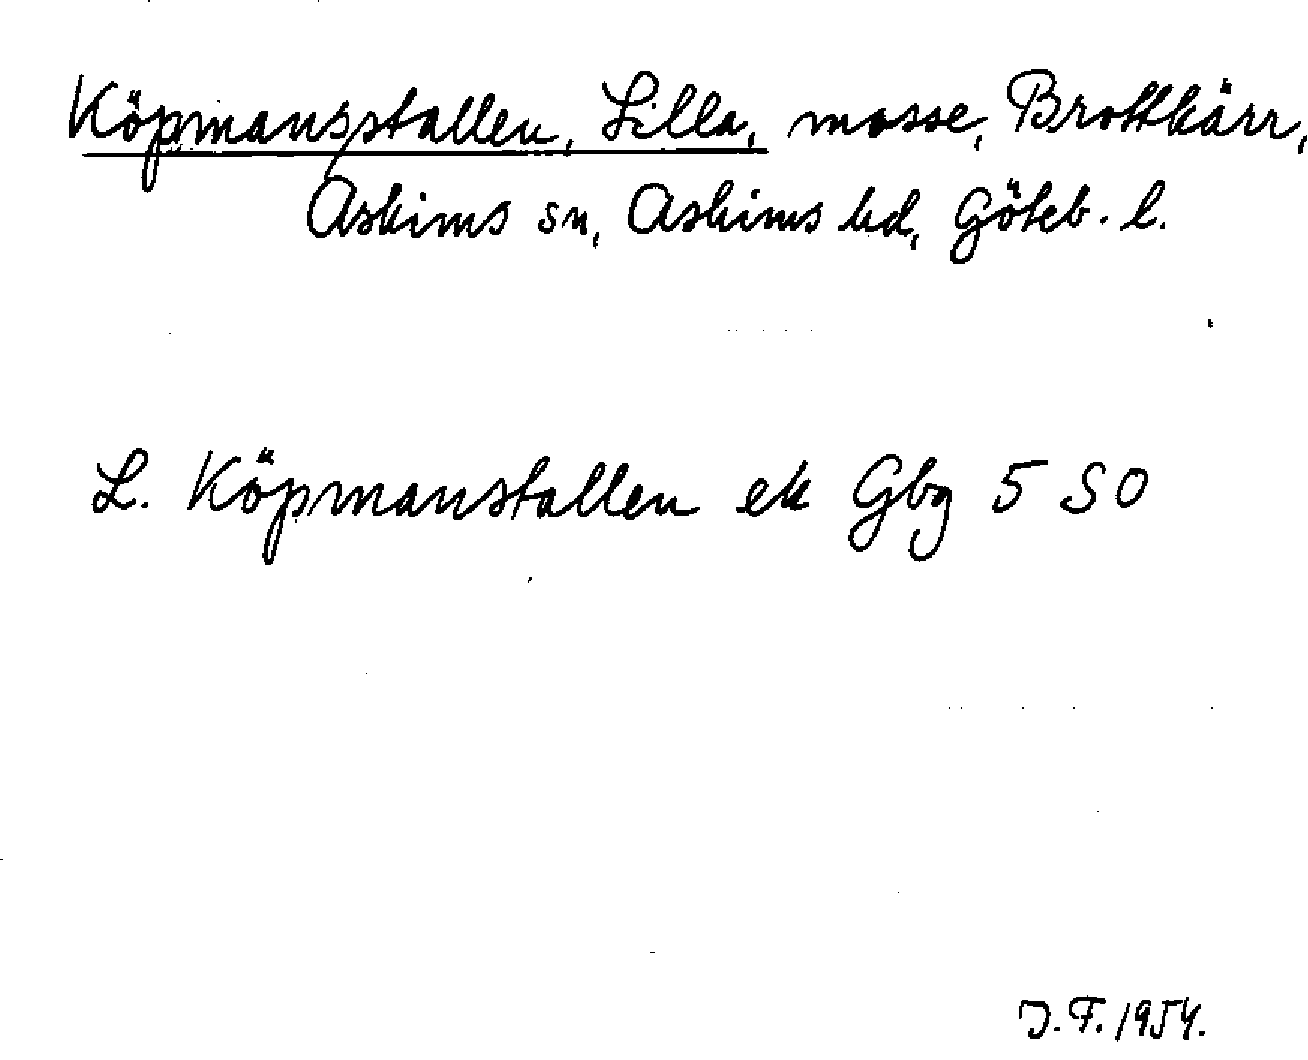 Köpmansstallen, Lilla, mosse, Brottkärr,
Askims sn, Askims hd, Göteb. l.
L. Köpmanstallen ek Gbg 5 SO
J. F. 1954.